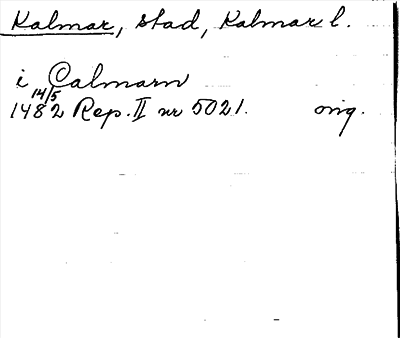 Kalmar, stad, Kalmar l.
i Calmarn
14/5
1482 Rep. II nr 5021. orig.